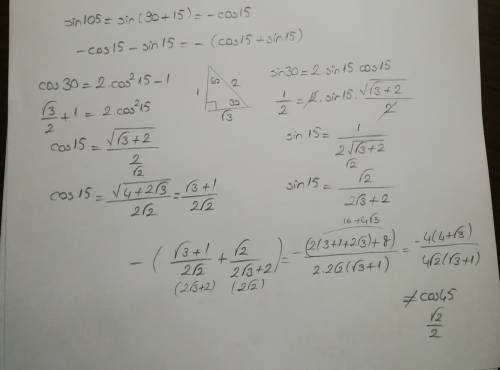 sin105 = sin(90+15) = -cos15
-cos15 - sin15 = -(cos15 + sin15)
cos30 = 2.cos²15 - 1
√3/2 + 1 = 2.cos²15
cos15 = √(√3+2)/2
√2
cos15 = √(4+2√3)/(2√2) = (√3+1)/(2√2)
1 60 2
30
√3
sin30 = 2.sin15.cos15
1/2 = 2.sin15.√(√3+2)/2
sin15 = 1/(2√(√3+2))
√2
sin15 = √2/(2√3+2)
16+4√3
-((√3+1)/(2√2) + √2/(2√3+2)) = -(2(3+1+2√3)+8)/(2.2√2(√3+1)) = -4(4+√3)/(4√2(√3+1))
(2√3+2) (2√2)
≠ cos45
√2/2